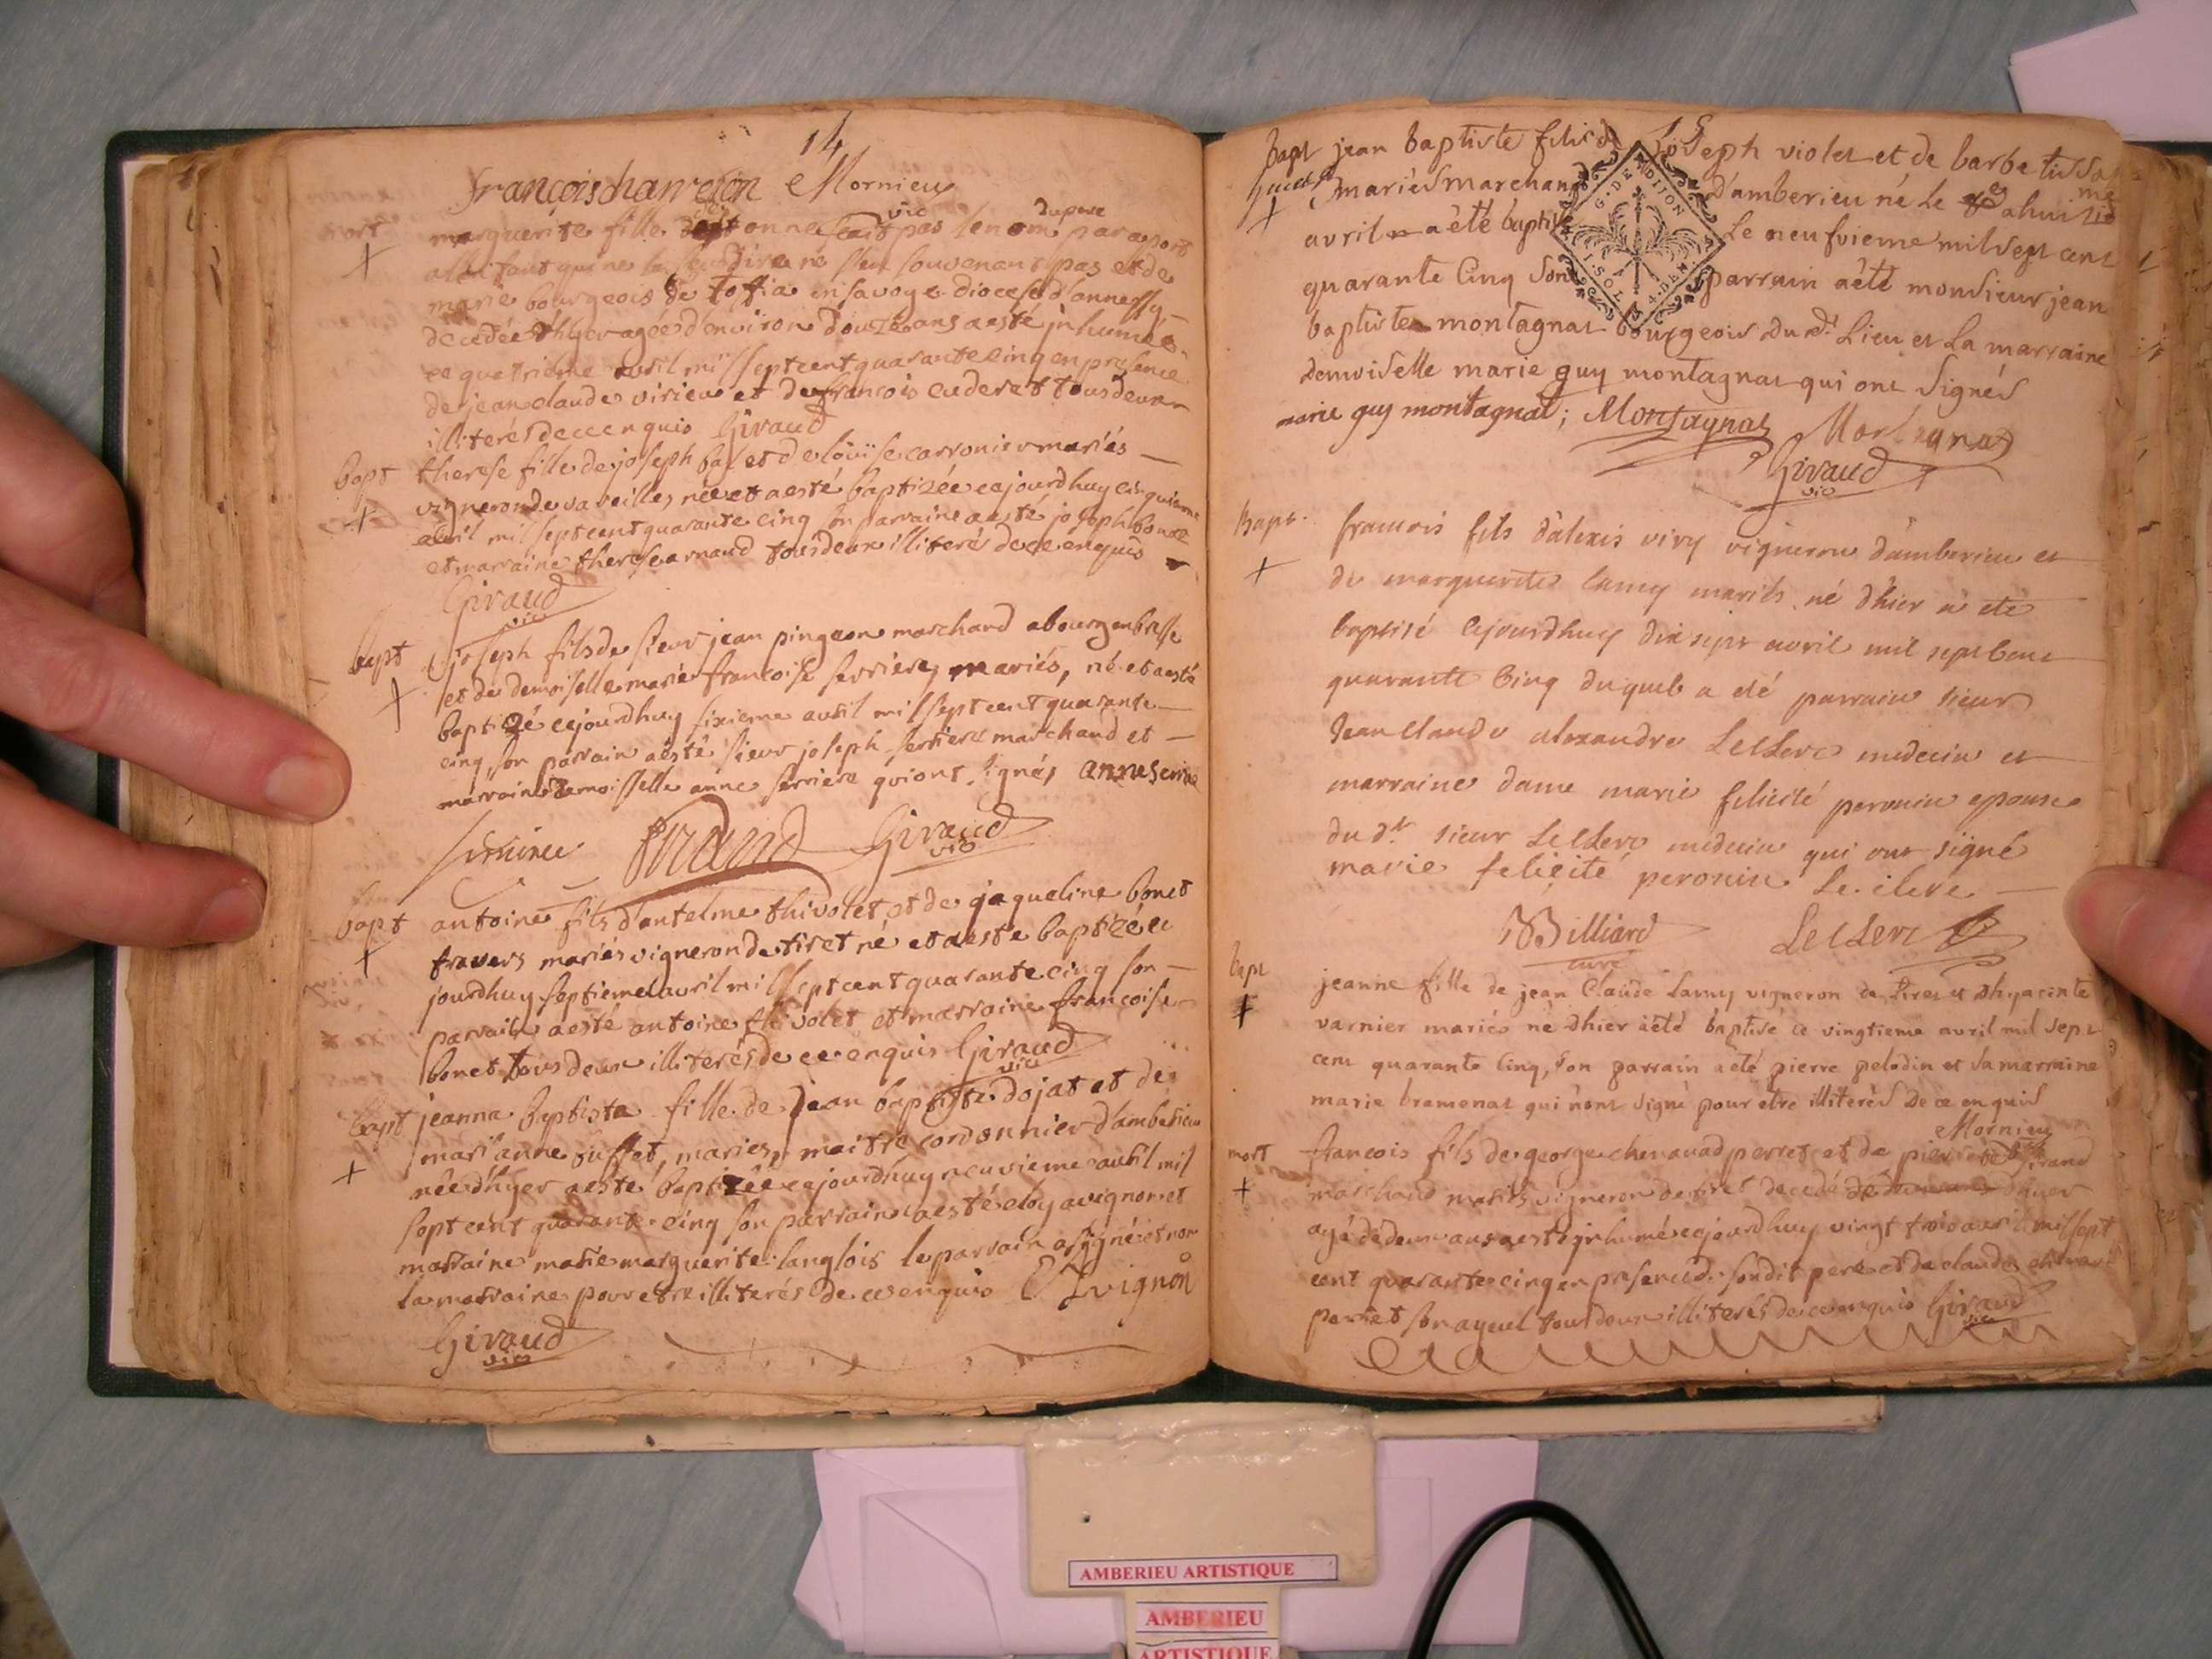 14
françois chanrion Mornieu
vic
mort marguerite fille dont on ne scait pas le nom du pere par aport
a l'enfant qui ne la sceu dire ne s'en souvenant pas et de
marie bourgeois de toffia en savoye diocese d'annessy
decedée d'hyer agée d'environ douze ans a esté inhumée
ce quatrieme avril mil sept cent quarante cinq en presence
de jean claude virieu et de françois cuderet tous deux
illiterés de ce enquis Giraud
bapt therese fille de joseph bal et de loüise carronier mariés
vigneron de vareilles née et a esté baptizée cejourdhuy cinquieme
avril mil sept cent quarante cinq son parrain a esté joseph
et marraine therese arnaud tous deux illiterés de ce enquis
Giraud
vic
bapt joseph fils de sieur jean pingeon marchand a bourg en bresse
et de demoiselle marie françoise serriere, mariés, né et a esté
baptizé cejourdhuy sixieme avril mil sept cent quarante
cinq, son parrain a esté sieur joseph serriere marchand et
marraine demoiselle anne serriere qui ont signés anne serriere
Giraud
vic
bapt antoine fils d'antelme thivolet et de jaqueline bonet
travers mariés vigneron de tiret né et a esté baptizé ce
jourdhuy septieme avril mil sept cent quarante cinq son
parrain a esté antoine thivolet et marraine françoise
bonet tous deux illiterés de ce enquis Giraud
vic
bapt jeanne baptiste fille de jean baptiste dojat et de
mari anne buffet, mariés, maitre cordonnier d'amberieu
née d'hyer a esté baptizée cejourdhuy neuvieme avril mil
sept cent quarante cinq son parrain a esté eloy avignon et
marraine marie marguerite langlois le parrain a signé et non
la marraine pour etre illiterés de ce enquis E Avignon
Giraud
vic
15
Bapt jean baptiste fils de joseph violet et de barbe
mariés marchand d'amberieu né le huitie me
avril a été baptisé le neufvieme mil sept cent
quarante cinq son parrain a été monsieur jean
baptiste montagnat bourgeois du dt. Lieu et La marraine
demoiselle marie guy montagnat qui ont signés
marie guy montagnat; Montagnat Montagnat
Giraud
vic
G. DE DIJON
4. DEN.
Bapt. francois fils d'alexis vivy vigneron d'amberieu et
de marguerite lamy mariés né d'hier a eté
baptisé cejourdhuy dix sept avril mil sept cent
quarante cinq duquel a eté parrain sieur
Jean Claude alexandre LeClerc medecin et
marraine dame marie felicité peronin epouse
du dt. sieur LeClerc medecin qui ont signé
marie felicité peronin le clerc
Billiard LeClerc
curé
bapt jeanne fille de jean Claude Lamy vigneron de tiret et d'hyacinte
varnier mariés né d'hier a été baptisé ce vingtieme avril mil sept
cent quarante cinq, son parrain a été pierre pelodin et sa marraine
marie bramenat qui n'ont signé pour etre illiterés de ce enquis
Mornieu
mort francois fils de george chenavad perret et de
marchand mariés vigneron de tiret decedé d'hyer
agé de deux ans a esté inhumé cejourdhuy vingt trois avril mil sept
cent quarante cinq en presence de son dit pere et de claude
perret son ayeul tous deux illiterés de ce enquis Giraud
vic
AMBERIEU ARTISTIQUE
AMBERIEU
ARTISTIQUE